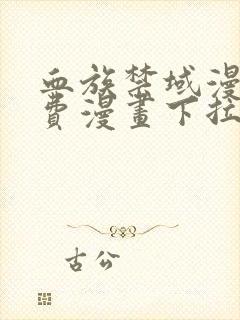 血族禁域漫
費漫畫下拉
古公